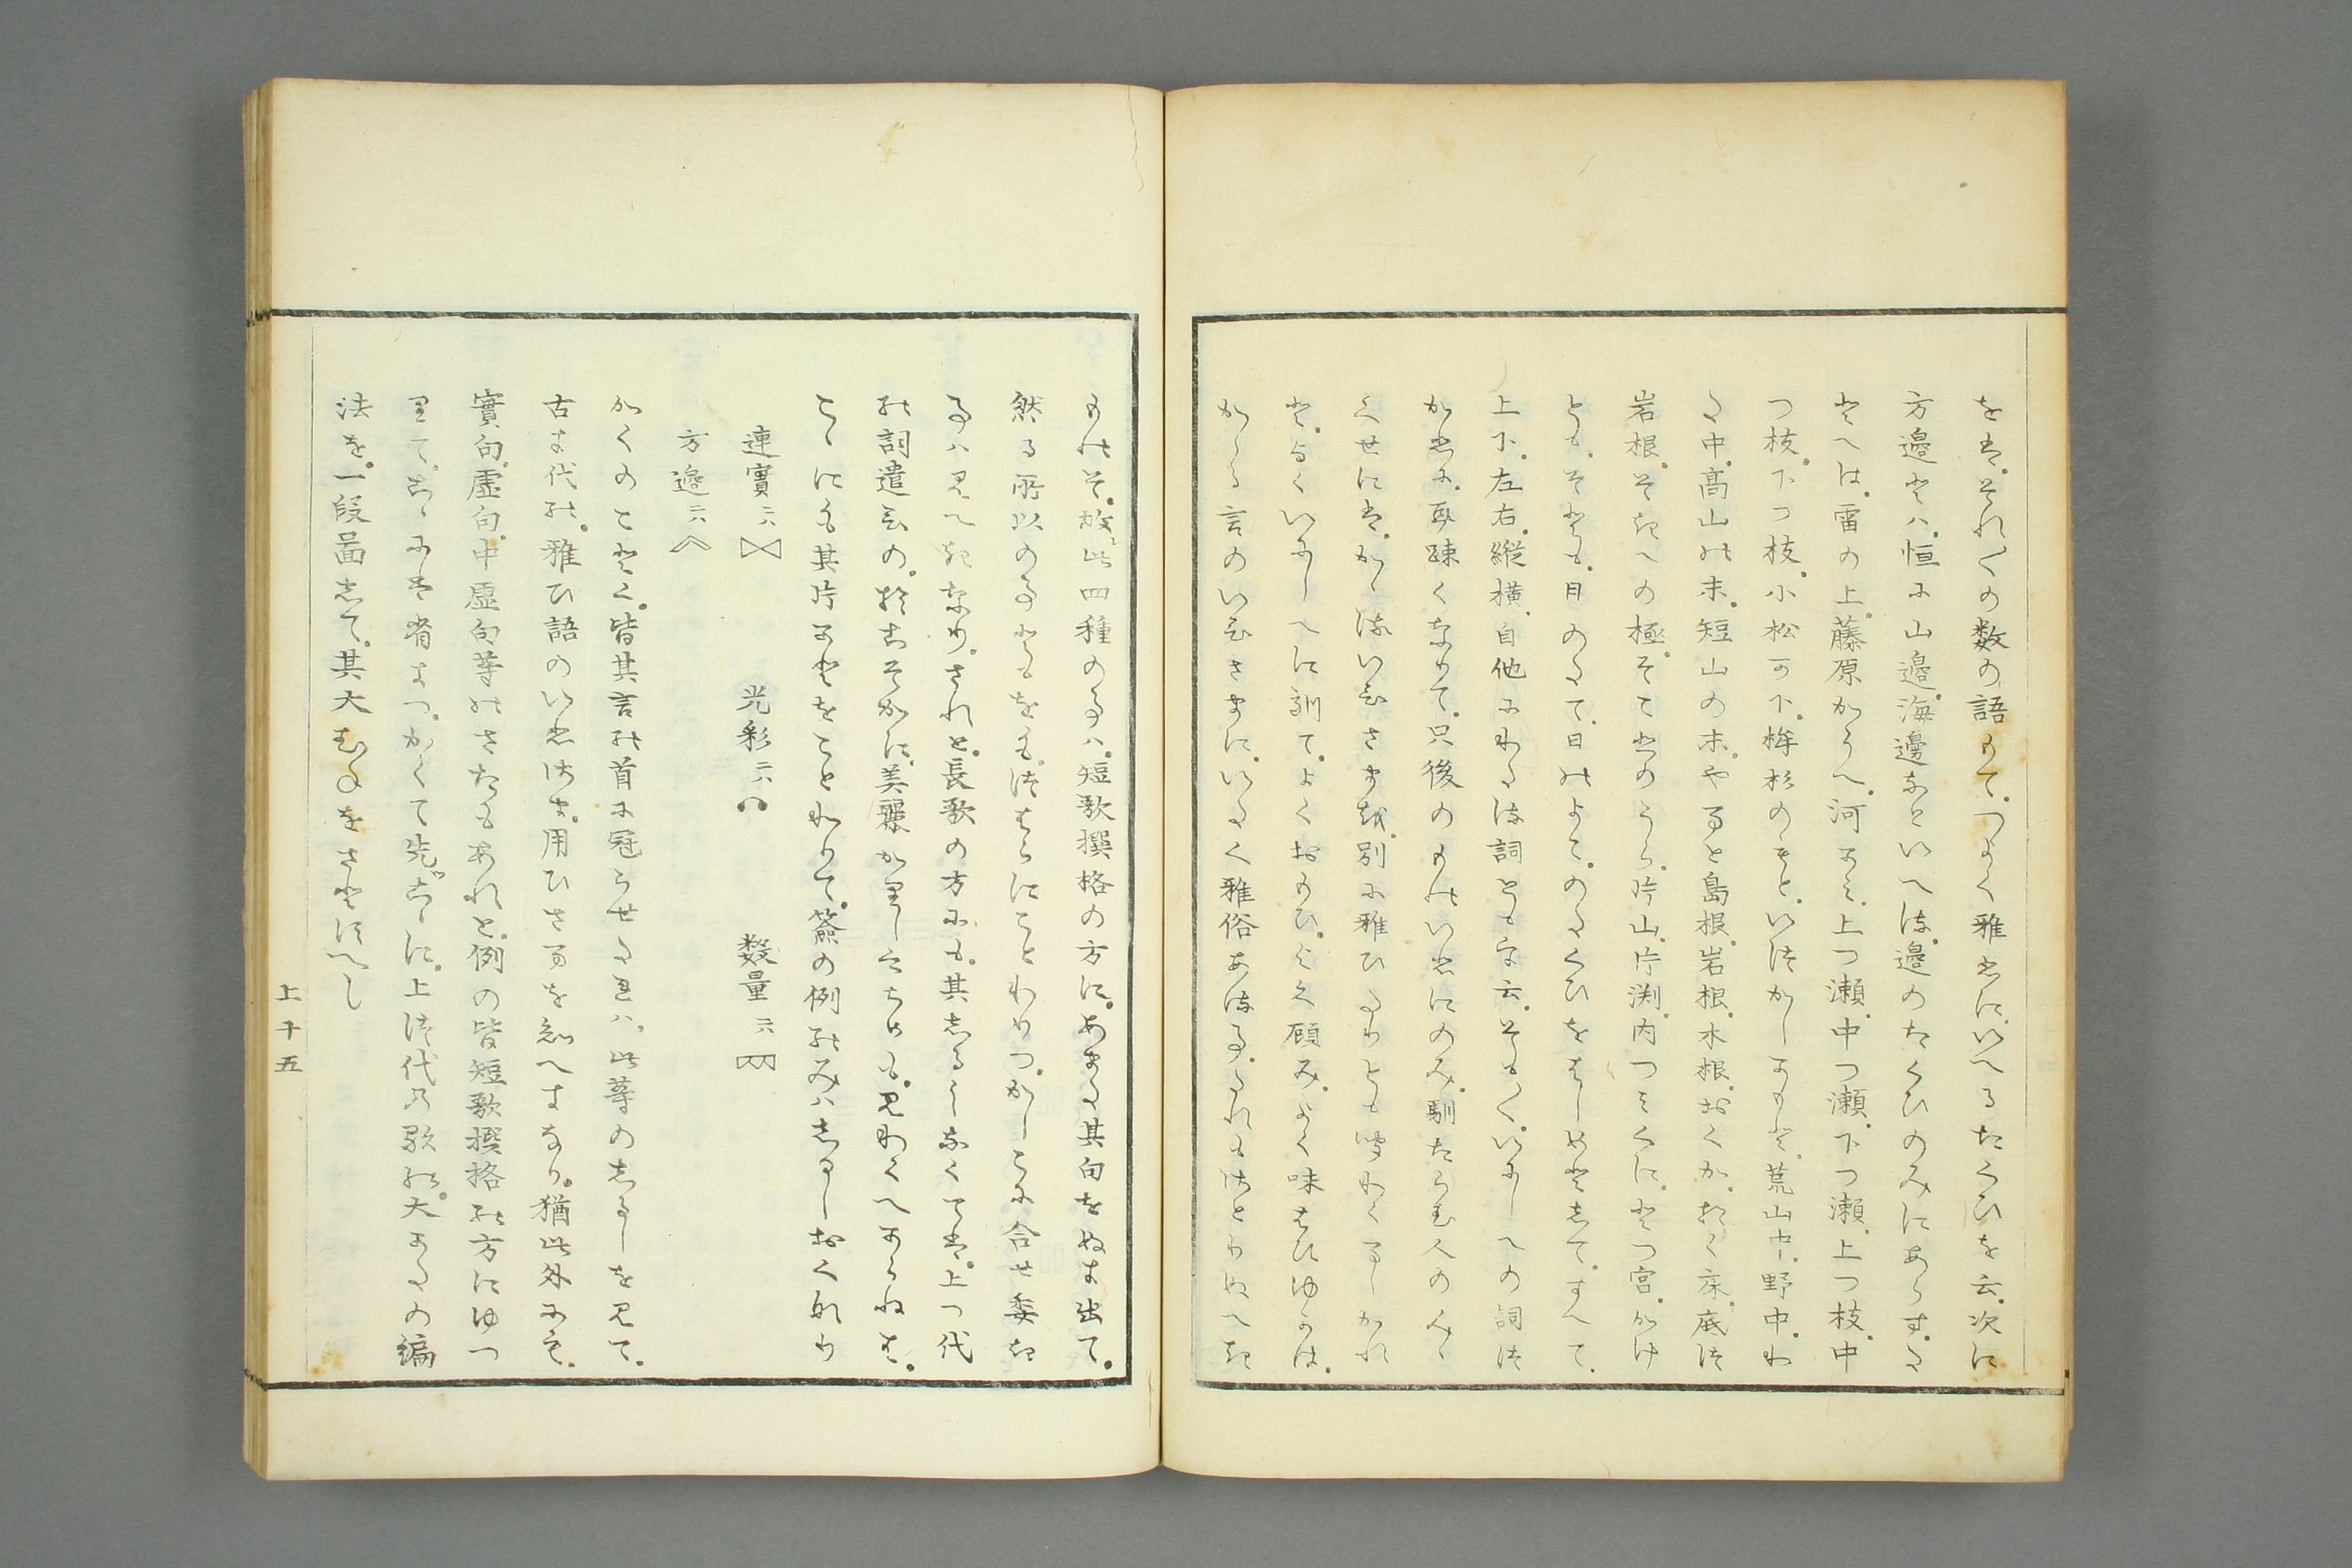 をは。それ〳〵の数の語もて。つよく雅たに。いへるたくひを云。次に
方邊とハ。恒に山邊。海邊なといへは。邊のたくひのみにあらす。た
とへは。雷の上。藤原かうへ。河かみ。上つ瀬。中つ瀬。下つ瀬。上つ枝。中
つ枝。下つ枝。小松か下。桙杉のもと。いつかしかもと。荒山中。野中。わ
た中。高山の末。短山の末。やまと島根。岩根。木根。おくか。おく床。底つ
岩根。そきへの極。そことのうら。片山。片渕。内つみくに。とつ宮。かけ
とも。そとも。日のたて。日のよこ。のたくひをはしめとして。すへて。
上下。左右。縦横。自他にわたる詞ともを云。そも〳〵。いにしへの詞つ
かひに。耳疎くなりて。只後のものいひにのみ。馴たらむ人のみゝ
くせには。かゝるいひさまを。別に雅ひたりとも聞わくましかれ
と。よくいにしへに訓て。よくおもひ。よく顧み。よく味はひゆかは。
かゝる言のいひさまに。いたく雅俗ある事。たれもさとりぬへき
ものそ。故此四種の事ハ。短歌撰格の方に。あまた其句をぬき出て。
然る所以の事ともをも。つはらにことわりつ。かしこに合せ委き
事ハ見へきなり。されと。長歌の方にも。其しるしなくては。上つ代
の詞遣ひの。おこそかに。美麗かりしこゝちも。見わくへからねは。
こゝにも其片かとをことわりて。簽の例のみハしるしおくなり
連實二ハ　　光彩二ハ　　数量二ハ
方邊二ハ
かくのことく。皆其言の首に冠らせたれハ。此等のしるしを見て。
古き代の。雅ひ語のいひさま。用ひさまを知へきなり。猶此外にも。
實句。虚句。中虚句等のさたもあれと。例の皆短歌撰格の方にゆつ
りて。こゝには省きつ。かくて先こゝに。上つ代の歌の。大かたの編
法を。一段圖して。其大むねをさとすへし
上十五